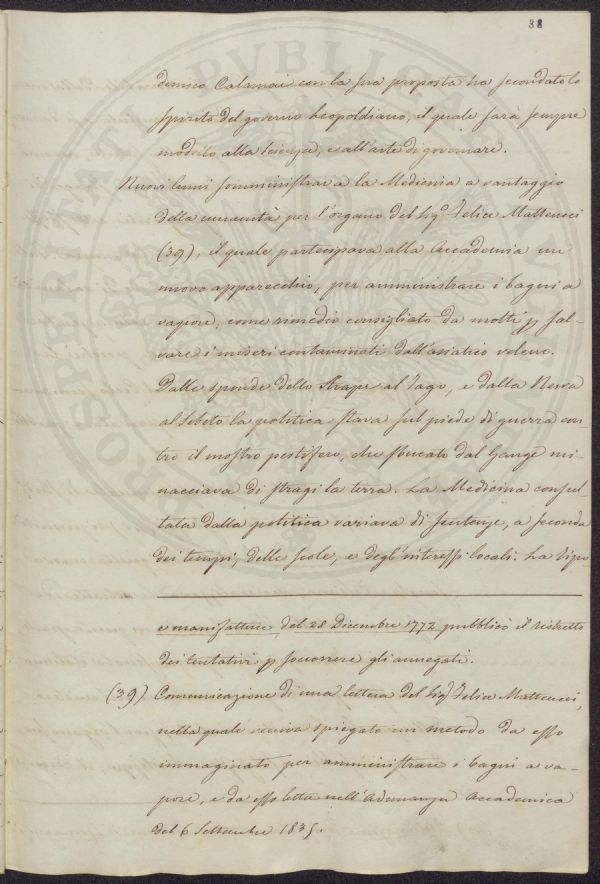 88
demico Calamai con la sua proposta ha secondato lo
spirito del governo Leopoldiano, il quale sarà sempre
modello alla scienza, e all'arte di governare.
Nuovi lumi somministrava la Medicina a vantaggio
della umanità per l'organo del Sig.r Felice Matteucci
(39), il quale partecipava alla Accademia un
nuovo apparecchio, per amministrare i bagni a
vapore, come rimedio consigliato da molti p sal-
vare i miseri contaminati dall'asiatico veleno.
Dalle sponde dello al Tago, e dalla Neva
al Sebeto la politica stava sul piede di guerra con-
tro il mostro pestifero, che sbucato dal Gange mi-
nacciava di stragi la terra. La Medicina consul-
tata dalla politica variava di sentenze, a seconda
dei tempi, delle scole, e degl'interessi locali. La
e manifatture del 28 Dicembre 1772 pubblicò il ristretto
dei tentativi p soccorrere gli annegati.
(39) Comunicazione di una lettera del Sig.r Felice Matteucci,
nella quale veniva spiegato un metodo da esso
immaginato per amministrare i bagni a va-
pore, e da esso letta nell'Adunanza Accademica
del 6 Settembre 1835.
PROSPERITATI PVBLICAE